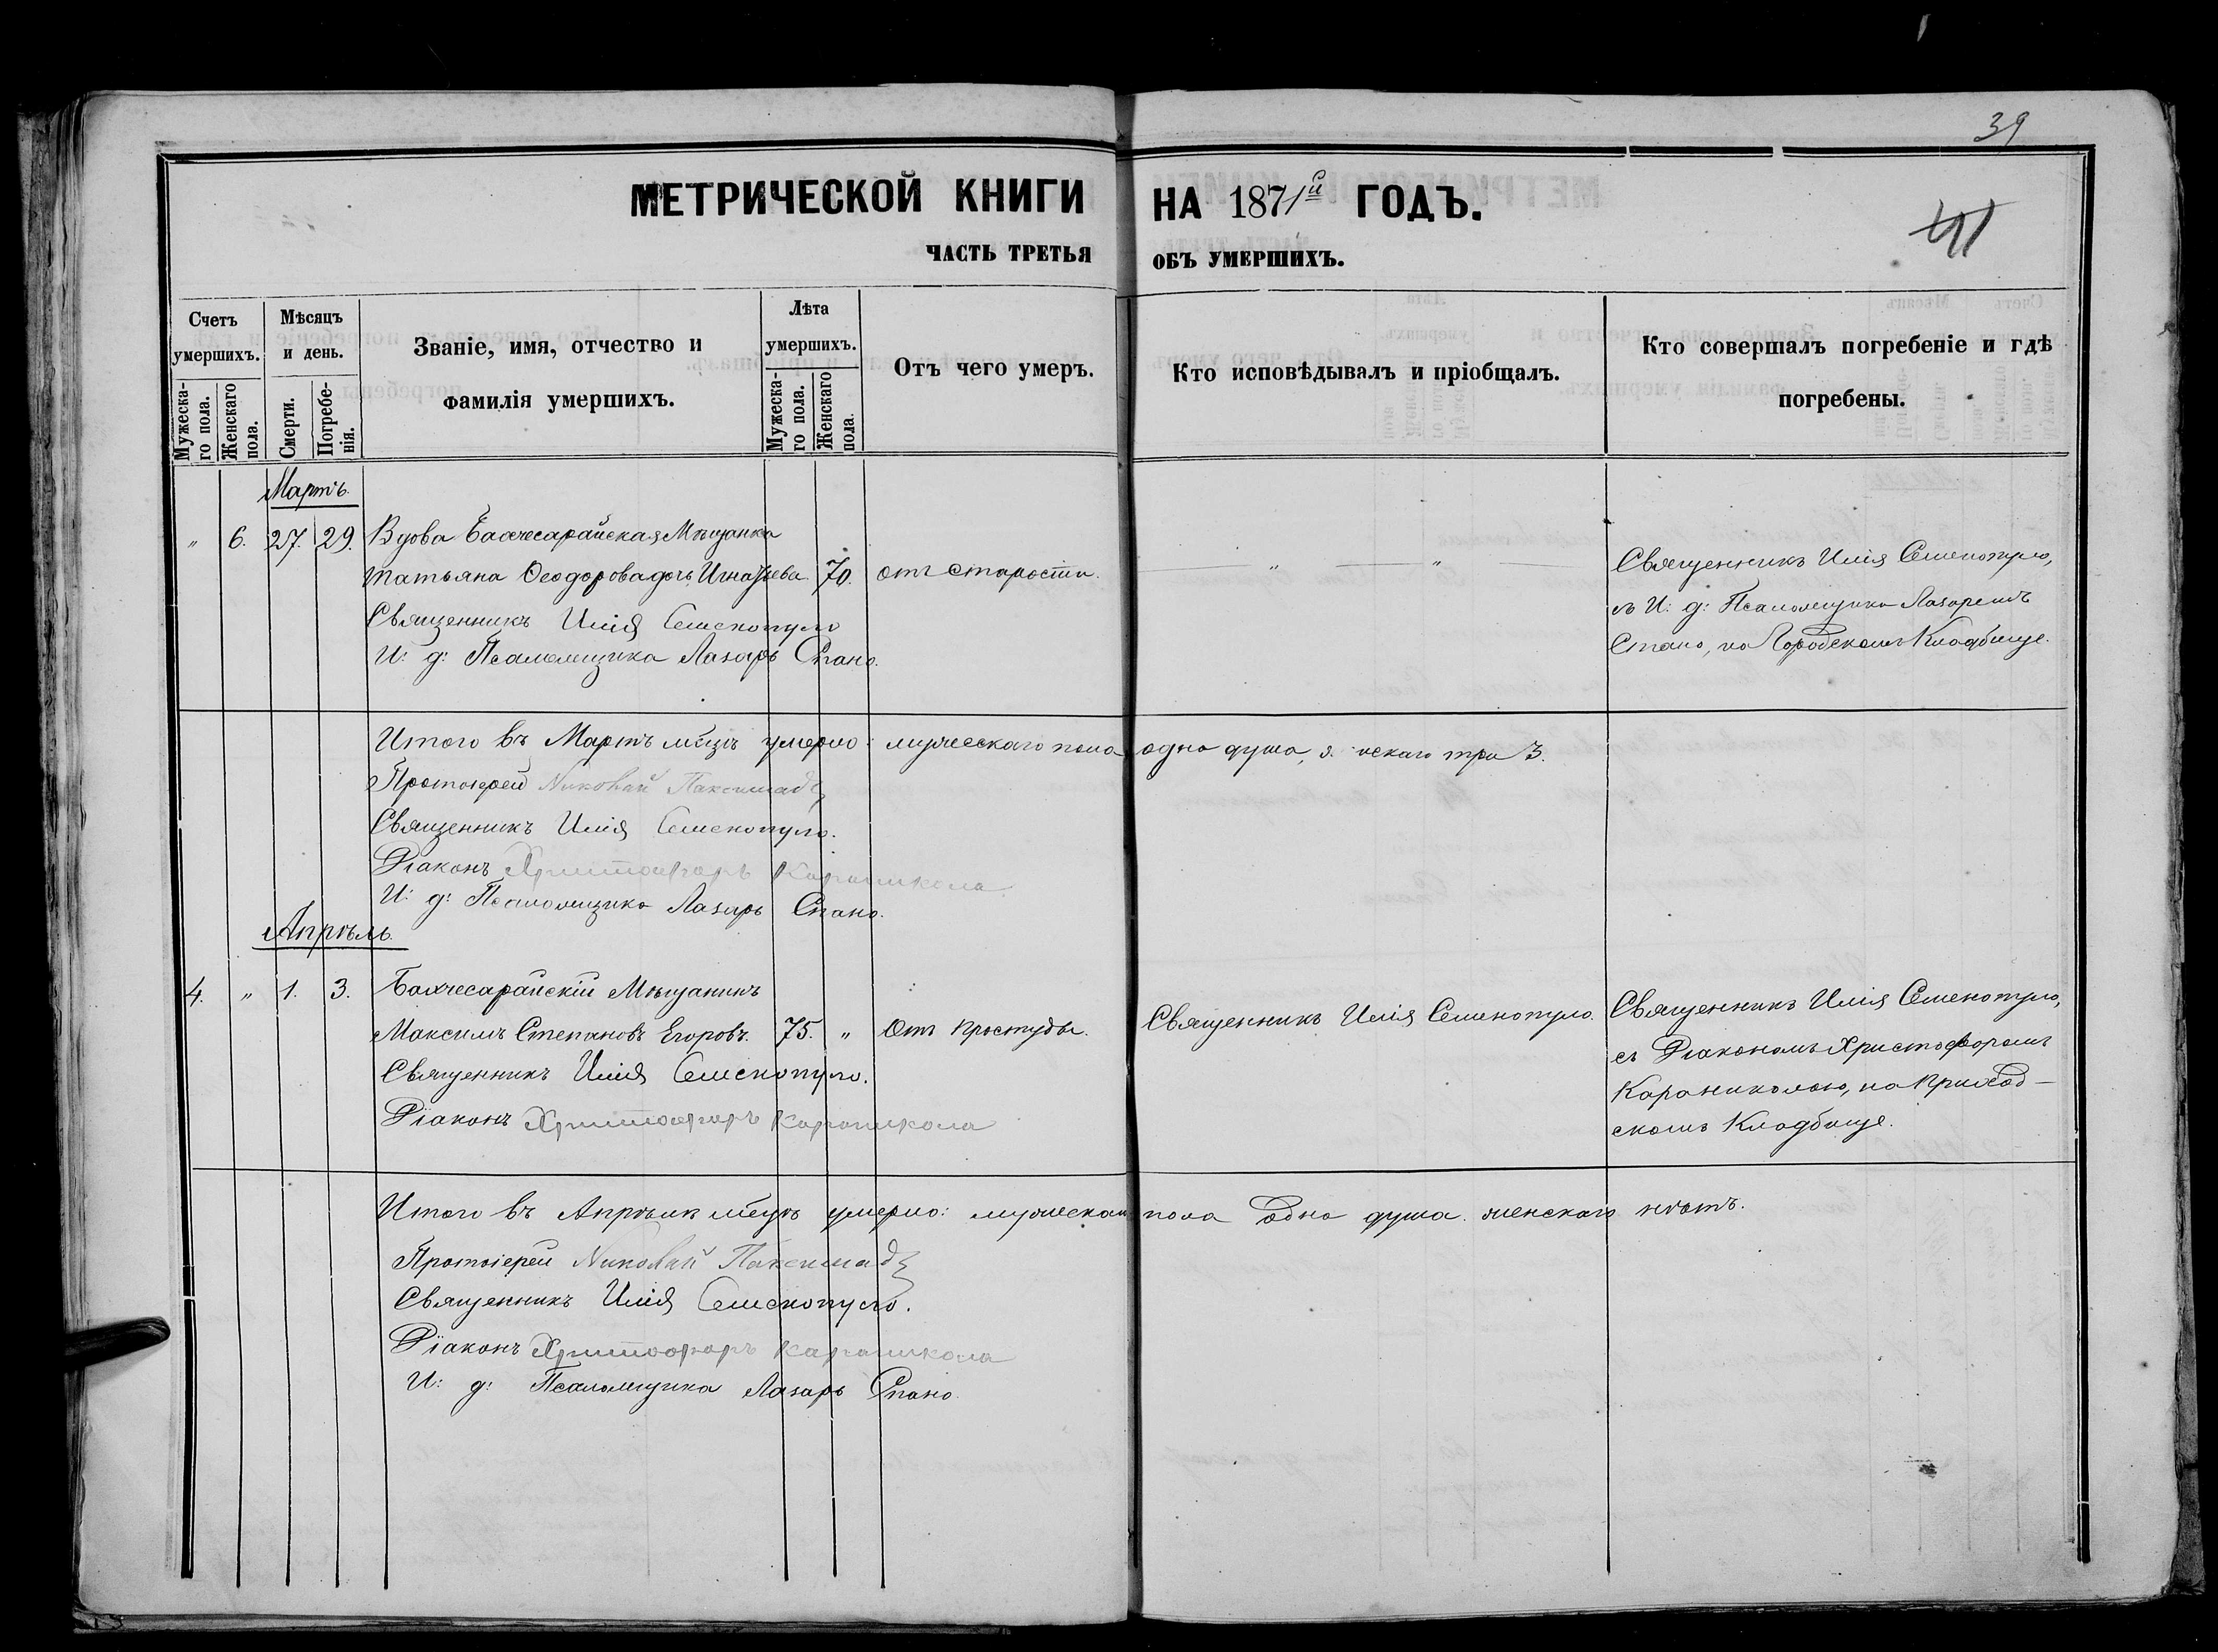 39
МЕТРИЧЕСКОЙ КНИГИ НА 1871й ГОДЪ.
41
ЧАСТЬ ТРЕТЬЯ ОБЪ УМЕРШИХЪ.
Счетъ умершихъ.
Мужеска-го пола.
Женскаго пола.
Мѣсяцъ и день.
Смерти.
Погребе-нія.
Званіе, имя, отчество и
фамилія умершихъ.
Лѣта умершихъ.
Мужеска-го пола.
Женскаго пола.
Отъ чего умеръ.
Кто исповѣдывалъ и пріобщалъ.
Кто совершалъ погребеніе и гдѣ
погребены.
Мартъ.
" 6. 27. 29. Вдова Бахчесарайская Мѣщанка
Татьяна Ѳеодорова дочь Игнатьева. 70. отъ старости. " "
Священникъ Илія Семенопуло
И: д: Псаломщика Лазарь Спано.
Священникъ Илія Семенопуло,
съ И: д: Псаломщика Лазаремъ
Спано, на Городскомъ Кладбище.
Итого въ Мартѣ мѣцѣ умерло: мужескаго пола одна душа, женскаго три 3.
Протоіерей Николай
Священникъ Илія Семенопуло.
Діаконъ Христофоръ Караникола
И: д: Псаломщика Лазарь Спано.
Апрѣль.
4. " 1. 3. Бахчесарайскій Мѣщанинъ
Максимъ Степановъ Егоровъ. 75. " Отъ простуды. Священникъ Илія Семенопуло.
Священникъ Илія Семенопуло.
Діаконъ Христофоръ Караникола
Священникъ Илія Семенопуло,
съ Діакономъ Христофоромъ
Караниколою, на Приход-
скомъ Кладбище.
Итого въ Апрѣлѣ мѣцѣ умерло: мужескаго пола одна душа. женскаго нѣтъ.
Протоіерей Николай
Священникъ Илія Семенопуло.
Діаконъ Христофоръ Караникола
И: д: Псаломщика Лазарь Спано.